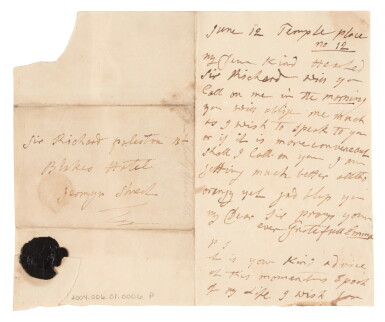 June 12 Temple place
no 12
my Dear Kind Hearted
Sir Richard will you
Call on me in the morning
you will oblige me much
as I wish to speak to you
or if it is more convenient
shall I Call on you I am
getting much better altho
yet god bless you
my Dear Sir pray your
ever gratefull Emma
P S
it is your Kind advice
at this moment I
of my life I wish for
Sir Richard puleston Bt
Blakes Hotel
Jermyn Street
2009.006.01.0006 P